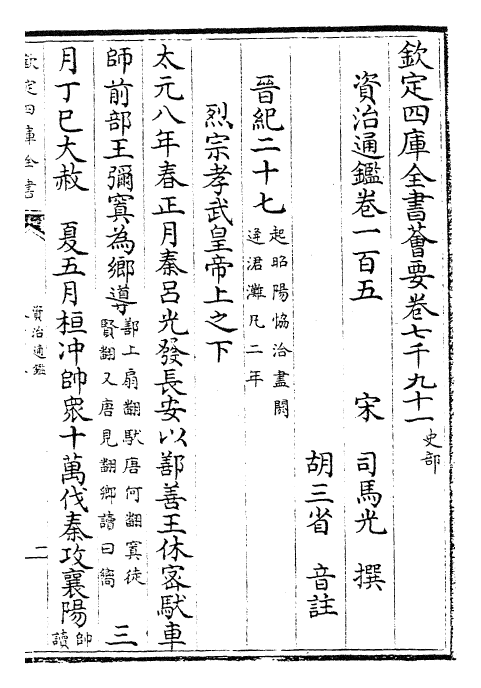 欽定四庫全書薈要卷七千九十一 史部
資治通鑑卷一百五 宋 司馬光 撰
胡三省 音註
晉紀二十七 起昭陽恊洽盡閼
逢涒灘凡二年
烈宗孝武皇帝上之下
太元八年春正月秦呂光發長安以鄯善王休宻馱車
師前部王彌窴為鄉導 鄯上扇翻馱唐何翻窴徒
賢翻又唐見翻鄉讀曰嚮 三
月丁巳大赦 夏五月桓冲帥衆十萬伐秦攻襄陽 帥
讀
欽定四庫全書 資治通鑑 二